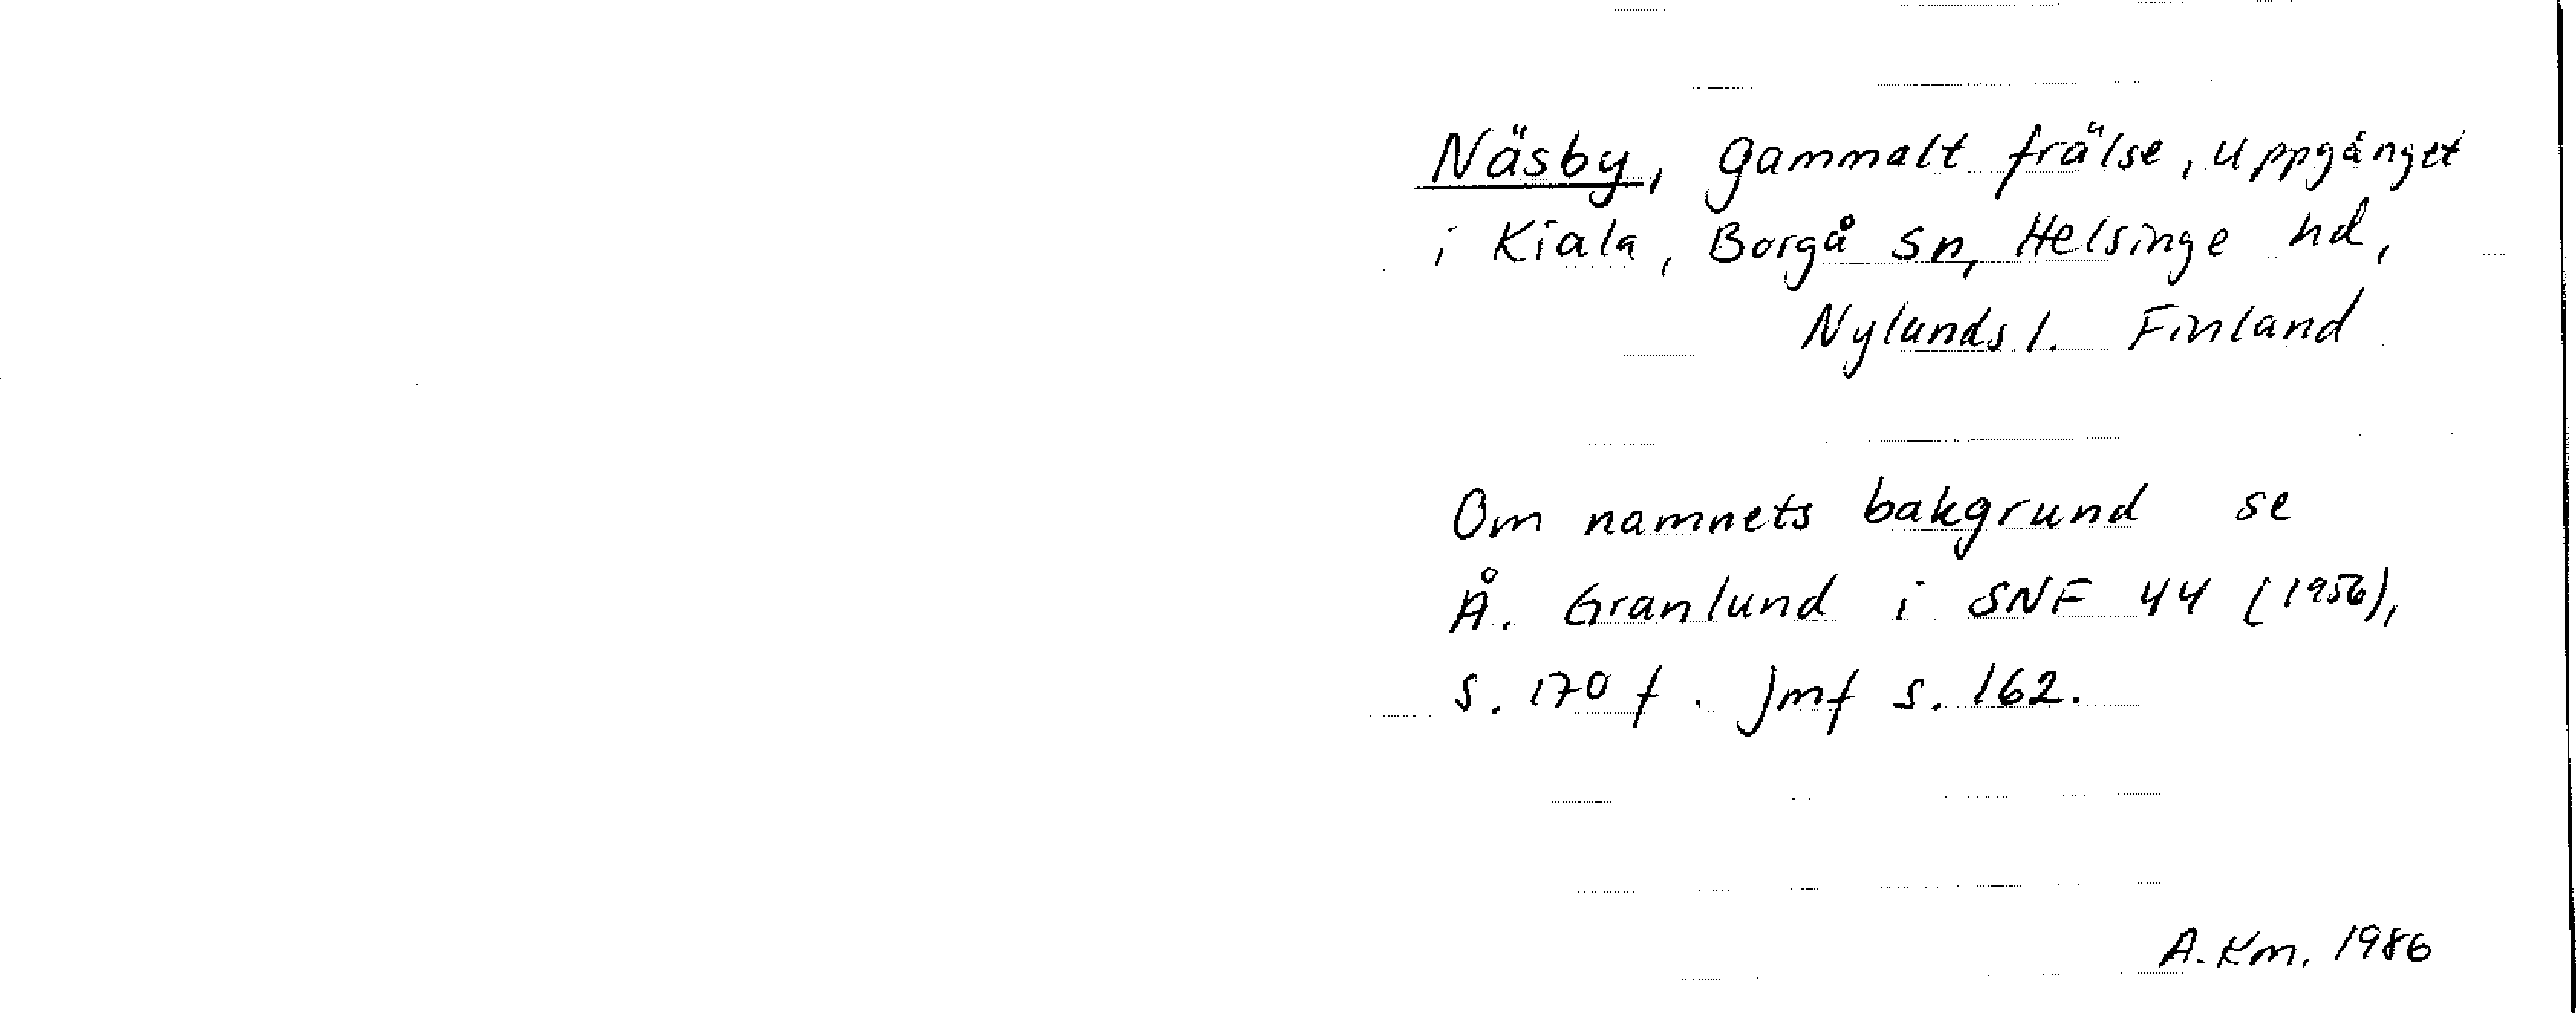 Näsby, gammalt frälse, uppgånget
i Kiala, Borgå sn, Helsinge hd,
Nylands l. Finland
Om namnets bakgrund se
Å. Granlund i SNF 44 (1956),
s. 170 f. Jmf s. 162.
A. Km. 1986